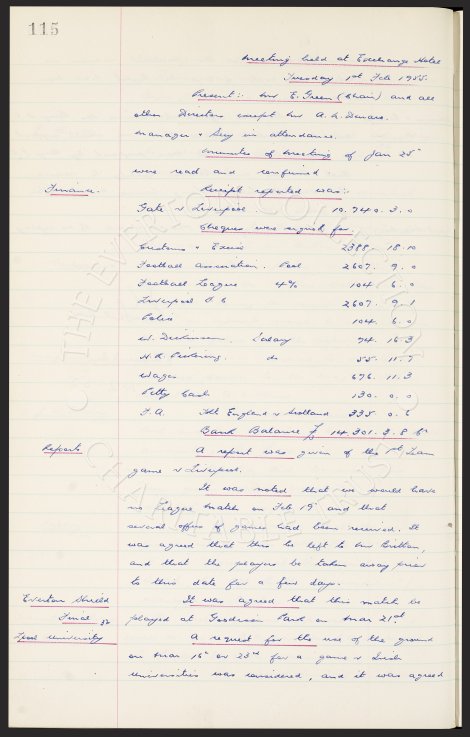 115
Meeting held at Exchange Hotel
Tuesday 1st Feb 1955.
Present:- Mr E. Green (Chair) and all
other Directors except Mr A. L. Denaro.
Manager & Secy in attendance.
Minutes of Meeting of Jan 25th
were read and confirmed
Finance. Receipt reported was:-
Gate v Liverpool. 10.740. 3. 0
Cheques were signed for
Customs & Excise 2388. 18. 10
Football Association. Pool 2607. 9. 0
Football League 4% 104. 6. 0
Liverpool F.C 2607. 9. 1
Police 104. 6. 0
W. Dickinson. Salary 74. 16. 3
H.R. Pickering. do 55. 11. 7
Wages 676. 11. 3
Petty Cash 130. 0. 0
F.A. England v Scotland 335 0. 6
Bank Balance £ 14.301. 3. 8
Reports A report was given of the 1st Team
game v Liverpool.
It was noted that we would have
no League match on Feb 19th and that
several offers of games had been received. It
was agreed that this be left to Mr Britton,
and that the players be taken away prior
to this date for a few days.
Everton Shield It was agreed that this match be
Final played at Goodison Park on Mar 21st.
Lpool University A request for the use of the ground
on Mar 16th or 23rd for a game v Irish
Universities was considered, and it was agreed
THE EVERTON COLLECTION
CHARITABLE TRUST